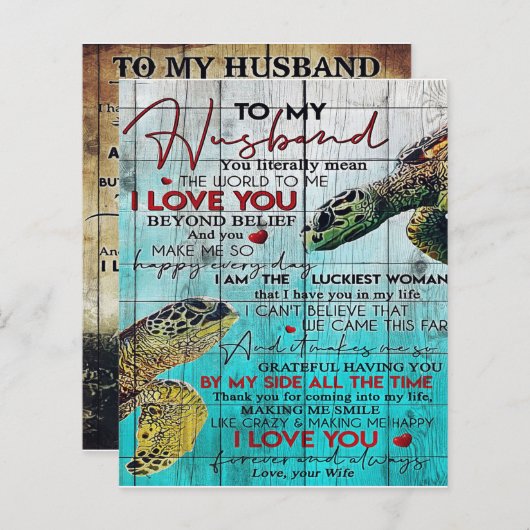 TO MY HUSBAND
I ha
A
BU
I L
TO MY
Husband
You literally mean
THE WORLD TO ME
I LOVE YOU
BEYOND BELIEF
And you
MAKE ME SO
happy every day
I AM THE LUCKIEST WOMAN
that I have you in my life
I CAN'T BELIEVE THAT
WE CAME THIS FAR
And it makes me so
GRATEFUL HAVING YOU
BY MY SIDE ALL THE TIME
Thank you for coming into my life,
MAKING ME SMILE
LIKE CRAZY & MAKING ME HAPPY
I LOVE YOU
forever and always
Love, your Wife